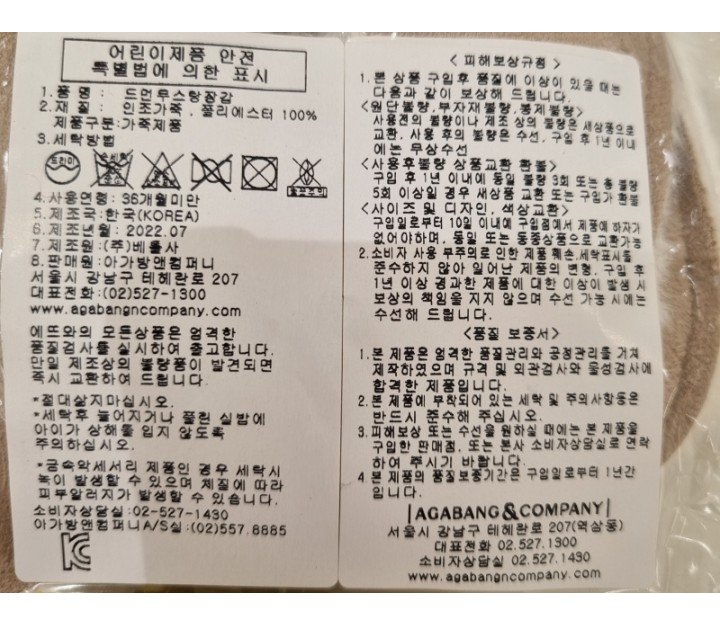 어린이제품 안전
특별법에 의한 표시
1.품 명 : 드먼무스탕장갑
2.재 질 : 인조가죽, 폴리에스터 100%
제품구분:가죽제품
3.세탁방법
4.사용연령: 36개월미만
5.제조국:한국(KOREA)
6.제조년월: 2022.07
7.제조원:(주)베를사
8.판매원:아가방앤컴퍼니
서울시 강남구 테헤란로 207
대표전화:(02)527-1300
www.agabangncompany.com
에뜨와의 모든상품은 엄격한
품질검사를 실시하여 출고합니다.
만일 제조상의 불량품이 발견되면
즉시 교환하여 드립니다.
*절대삶지마십시오.
*세탁후 늘어지거나 풀린 실밥에
아이가 상해를 입지 않도록
주의하십시오.
*금속악세서리 제품인 경우 세탁시
녹이 발생할 수 있으며 체질에 따라
피부알러지가 발생할 수 있습니다.
소비자상담실: 02-527-1430
아가방앤컴퍼니A/S실:(02)557.8885
< 피해보상규정 >
1.본 상품 구입후 품질에 이상이 있을 때는
다음과 같이 보상해 드립니다.
<원단불량,부자재불량,봉제불량>
사용전의 불량이나 제조 상의 불량은 새상품으로
교환, 사용 후의 불량은 수선, 구입 후 1년 이내
에는 무상수선
<사용후불량 상품교환 환불>
구입 후 1년 이내에 동일 불량 3회 또는 총 불량
5회 이상일 경우 새상품 교환 또는 구입가 환불
<사이즈 및 디자인, 색상교환>
구입일로부터 10일 이내에 구입점에서 제품에 하자가
없어야하며, 동일 또는 동종상품으로 교환가능
2.소비자 사용 부주의로 인한 제품 훼손,세탁표시를
준수하지 않아 일어난 제품의 변형, 구입 후
1년 이상 경과한 제품에 대한 이상이 발생 시
보상의 책임을 지지 않으며 수선 가능 시에는
수선해 드립니다.
<품질 보증서>
1.본 제품은 엄격한 품질관리와 공정관리를 거쳐
제작하였으며 규격 및 외관검사와 물성검사에
합격한 제품입니다.
2.본 제품에 부착되어 있는 세탁 및 주의사항등은
반드시 준수해 주십시오.
3.피해보상 또는 수선을 원하실 때에는 본 제품을
구입한 판매점, 또는 본사 소비자상담실로 연락
하여 주시기 바랍니다.
4 본 제품의 품질보증기간은 구입일로부터 1년간
입니다.
AGABANG&COMPANY
서울시 강남구 테헤란로 207(역삼동)
대표전화 02.527.1300
소비자상담실 02.527.1430
www.agabangncompany.com